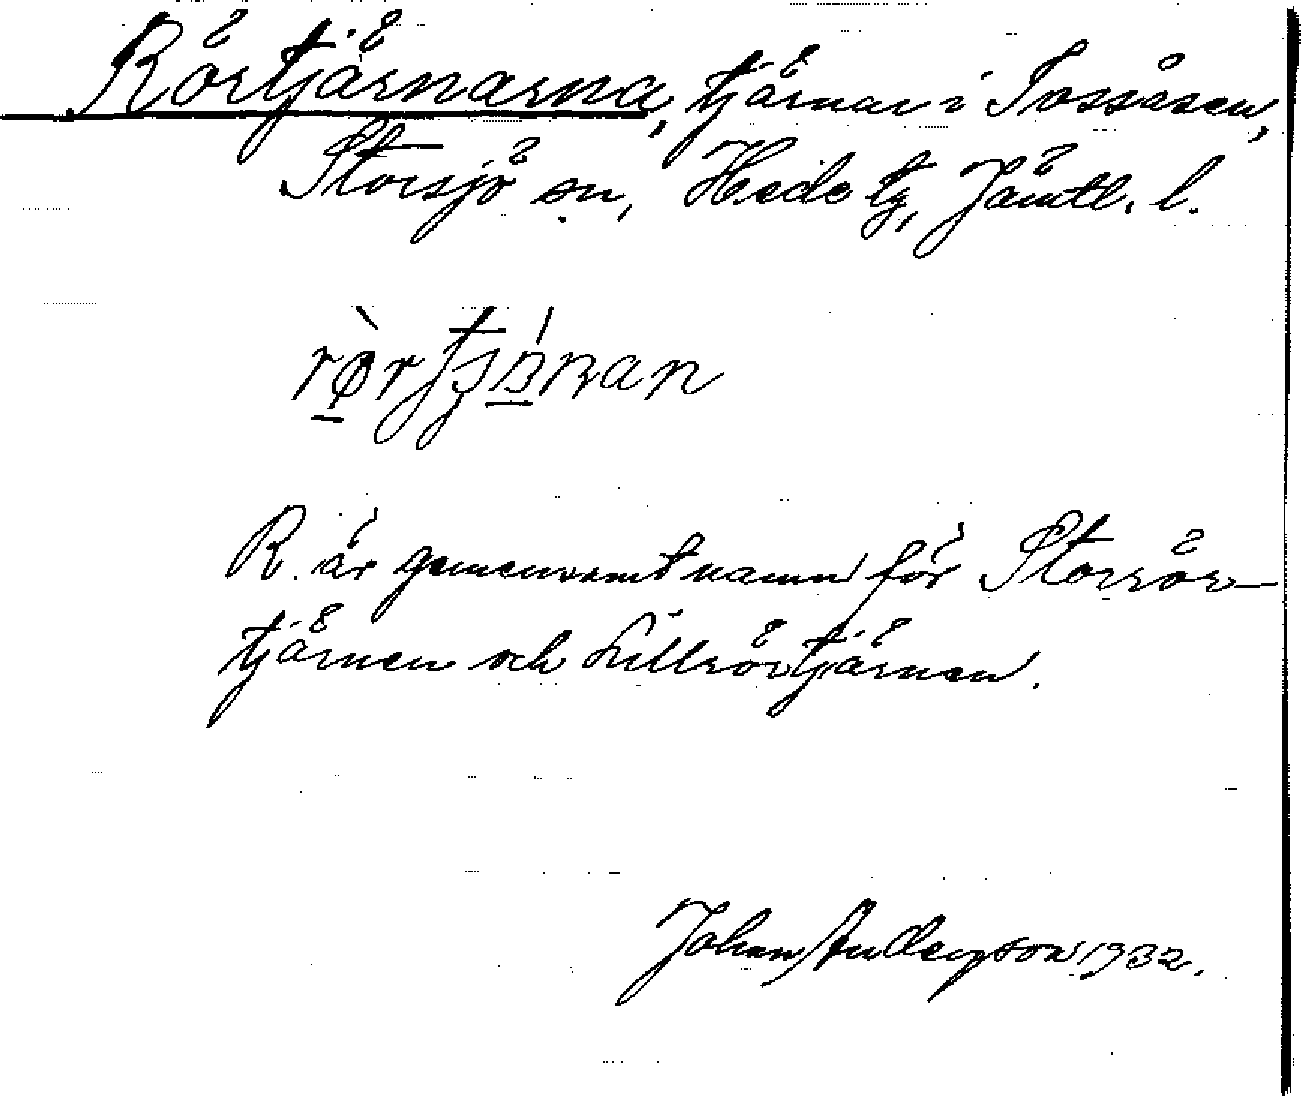 Rörtjärnarna, tjärnar i Tossåsen,
Storsjö sn, Hede tg, Jämtl. l.
R. är gemensamt namn för Storrör-
tjärnen och Lillrörtjärnen.
Johan Anderson 1932.